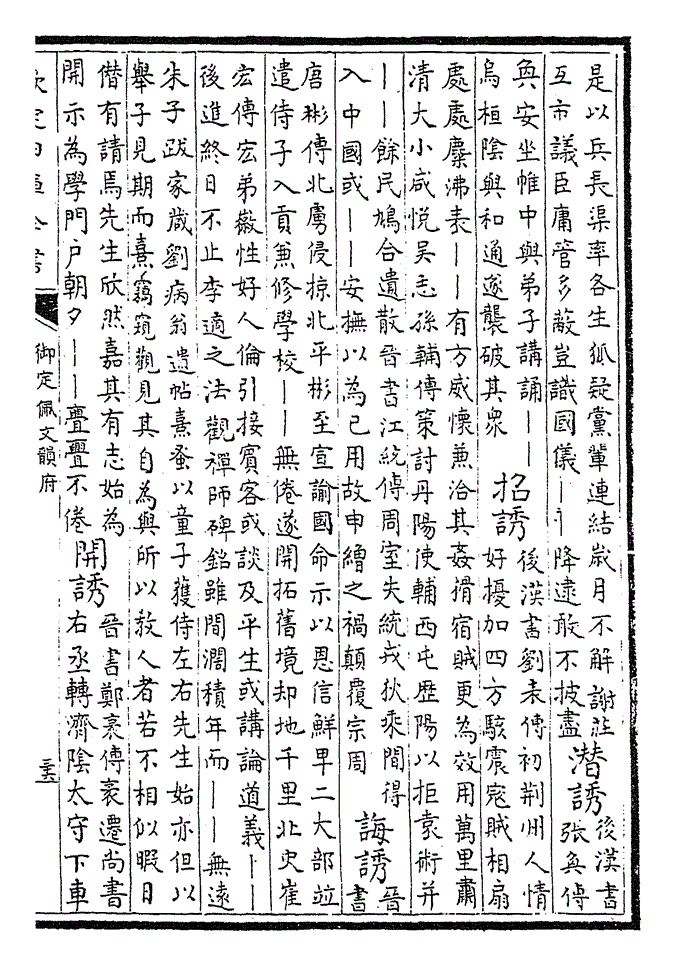 是以兵長渠率各生狐疑黨輩連結歲月不解謝莊
互市議臣庸管多蔽豈識國儀——降逮敢不披盡
潛誘
後漢書
張奐傳
奐安坐帷中與弟子講誦——
烏桓陰與和通遂襲破其衆
招誘
後漢書劉表傳初荆州人情
好擾加四方駭震寇賊相扇
處處麋沸表——有方威懷兼洽其姦猾宿賊更為效用萬里肅
清大小咸悅吳志孫輔傳策討丹陽使輔西屯歷陽以拒袁術并
——餘民鳩合遺散晉書江統傳周室失統戎狄乘間得
入中國或——安撫以為已用故申繒之禍顛覆宗周
誨誘
晉
書
唐彬傳北虜侵掠北平彬至宣諭國命示以恩信鮮卑二大部竝
遣侍子入貢兼修學校——無倦遂開拓舊境却地千里北史崔
宏傳宏弟徽性好人倫引接賓客或談及平生或講論道義——
後進終日不止李適之法觀禪師碑銘雖間濶積年而——無遠
朱子跋家藏劉病翁遺帖熹蚤以童子獲侍左右先生始亦但以
舉子見期而熹竊窺觀見其自為與所以教人者若不相似暇日
僭有請焉先生欣然嘉其有志始為
開示為學門户朝夕——亹亹不倦
開誘
晉書鄭袤傳袤遷尚書
右丞轉濟陰太守下車
欽定四庫全書
御定佩文韻府